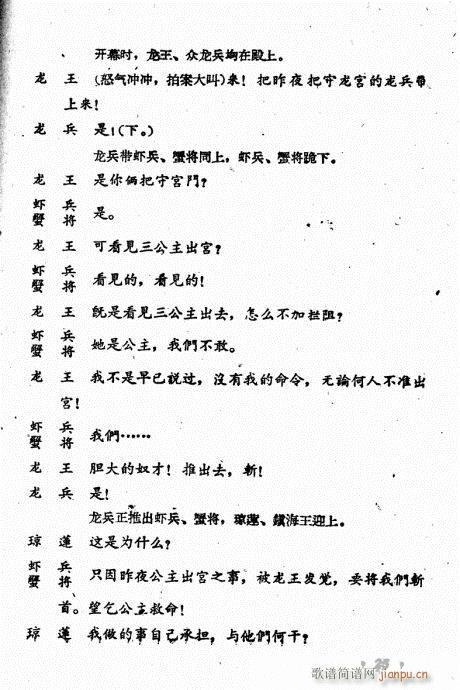 开幕时，龙王、众龙兵均在殿上。
龙 王 (怒气冲冲，拍案大叫)来！把昨夜把守龙宫的龙兵带
上来！
龙 兵 是！(下。)
龙兵带虾兵、蟹将同上，虾兵、蟹将跪下。
龙 王 是你俩把守宫門？
虾 兵
蟹 将 是。
龙 王 可看見三公主出宫？
虾 兵
蟹 将 看見的，看見的！
龙 王 旣是看見三公主出去，怎么不加拦阻？
虾 兵
蟹 将 她是公主，我們不敢。
龙 王 我不是早已説过，沒有我的命令，无論何人不准出
宫！
虾 兵
蟹 将 我們……
龙 王 胆大的奴才！推出去，斬！
龙 兵 是！
龙兵正推出虾兵、蟹将，琼莲、鎭海王迎上。
琼 蓮 这是为什么？
虾 兵
蟹 将 只因昨夜公主出宫之事，被龙王发觉，要将我們斬
首。望乞公主救命！
琼 蓮 我做的事自己承担，与他們何干？
25
歌谱简谱网
jianpu.cn